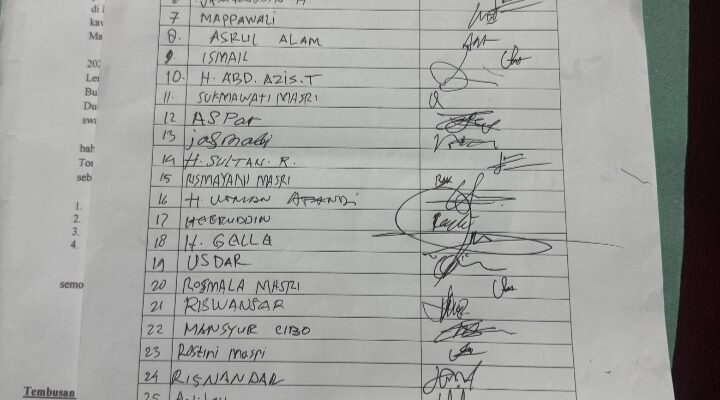 di
kav
Ma
202
Len
Bu
Du
swa
bah
Tor
seb
1.
2.
3.
4.
semo
Tembusan
7 MAPPAWALI
8. ASRUL ALAM
9. ISMAIL
10. H. ABD. AZIS.T
11. SUKMAWATI MASRI
12 ASPAr
13 jasmadi
14 H. SULTAN. R.
15 RISMAYANI MASRI
16 H USMAN
17 HAERUDDIN
18 H. GALLA
19 USDAR
20 ROSMALA MASRI
21 RISWANSAR
22 MANSYUR CIBO
23 Rostini Masri
24 RISNANDAR
25